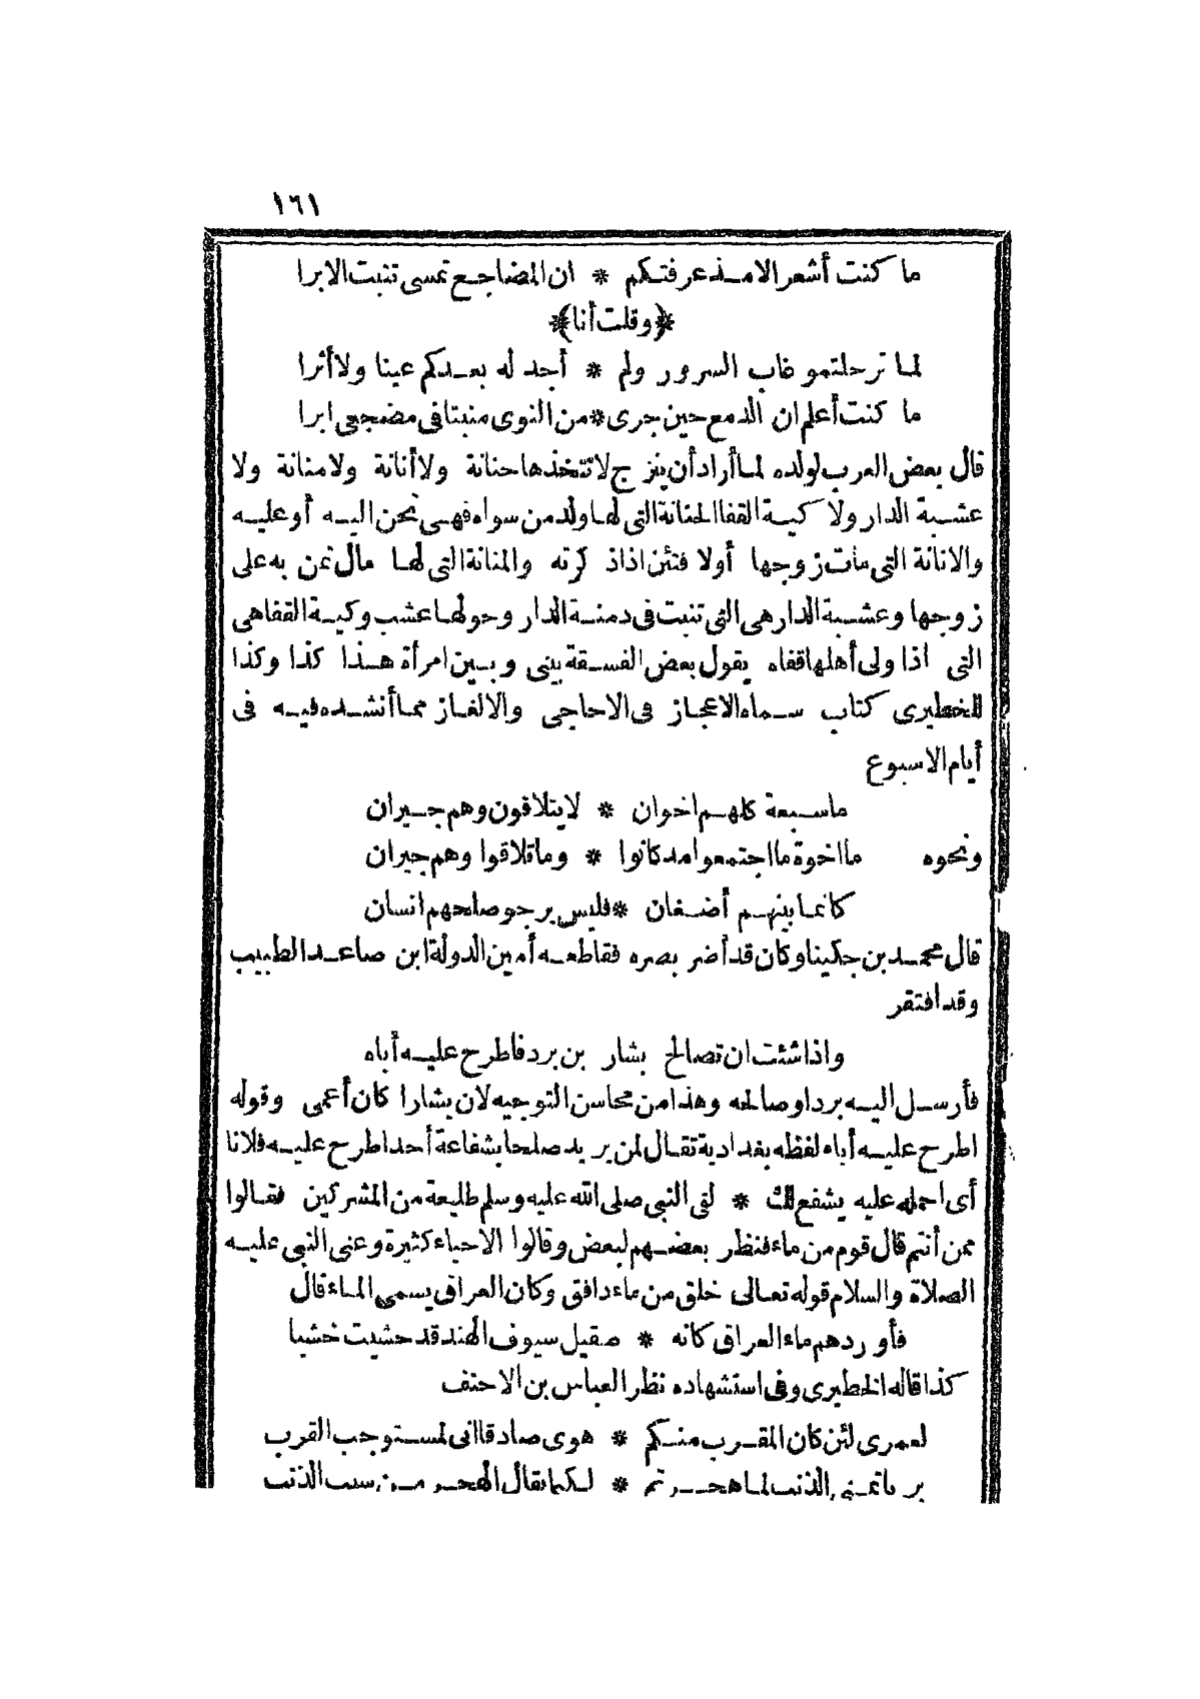 ١٦١
ما كنت أشعر الا مــذ عرفتــكم * ان المضاجــع تمسى تنبت الابرا
﴿وقلت أنا﴾
لمــا ترحلتمو غاب السرور ولم * أجد له بعــدكم عينا ولا أثرا
ما كنت أعلم ان الدمع حين جرى * من النوى منبتا فى مضجعى ابرا
قال بعض العرب لولده لمــا أراد أن يتزوج لا تتخذها حنانة ولا أنانة ولا منانة ولا
عشــبة الدار ولا كيــة القفا الحنانة التى لهــا ولد من سواه فهــى تحن اليــه أو عليــه
والانانة التى مات زوجها أولا فتئن اذا ذكرته والمنانة التى لهــا مال تمن به على
زوجها وعشــبة الدار هى التى تنبت فى دمنــة الدار وحولهــا عشب وكيــة القفا هى
التى اذا ولى أهلها قفاه يقول بعض الفســقة بينى وبــين امرأة هــذا كذا وكذا
للخطيرى كتاب ســماه الاعجاز فى الاحاجى والالغــاز ممــا أنشــده فيــه فى
أيام الاسبوع
ماســبعة كلهــم اخوان * لا يتلاقون وهم جــيران
ونحوه ما اخوة ما اجتمعوا مذ كانوا * وما تلاقوا وهم جيران
كانمــا بينهــم أضــغان * فليس يرجو صلحهم انسان
قال محمــد بن جكينا وكان قد أضر بصره فقاطعــه أمين الدولة ابن صاعــد الطبيب
وقد افتقر
واذا شئت ان تصالح بشار بن برد فاطرح عليــه أباه
فأرســل اليــه بردا وصالحه وهذا من محاسن التوجيه لان بشارا كان أعمى وقوله
اطرح عليــه أباه لفظه بغدادية تقــال لمن يريد صلحا بشفاعة أحد اطرح عليــه فلانا
أى احمله عليه يشفع لك * لقى النبى صلى الله عليه وسلم طليعة من المشركين فقــالوا
ممن أنتم قال قوم من ماء فنظر بعضــهم لبعض وقالوا الاحياء كثيرة وعنى النبى عليــه
الصلاة والسلام قوله تعــالى خلق من ماء دافق وكان العراق يسمى المــاء قال
فأوردهم ماء العراق كانه * صقيل سيوف الهند قد حشيت خشبا
كذا قاله الخطيرى وفى استشهاده نظر العباس بن الاحنف
لعمرى لئن كان المقــرب منــكم * هوى صادقا انى لمســتوجب القرب
الذنب لمــا هجــرتم * الهجــر مــن سبب الذنب